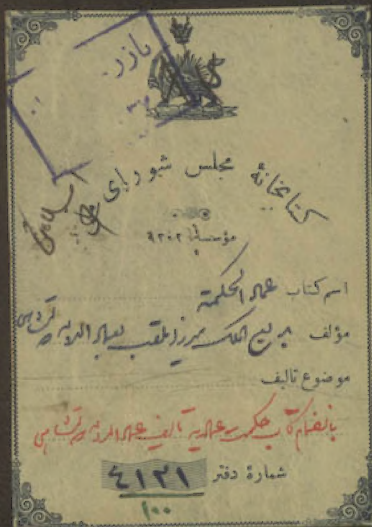 بازر
کتابخانهٔ مجلس شورای
مؤسسه ۱۳۰۲
اسم کتاب عماد الحکمة
مؤلف بدیع الملک میرزا ملقب بعماد الدوله
موضوع تالیف
بانضمام کتاب حکمت عمادیه تالیف عماد الدوله
شمارهٔ دفتر ٤١٢١
۱۰۰